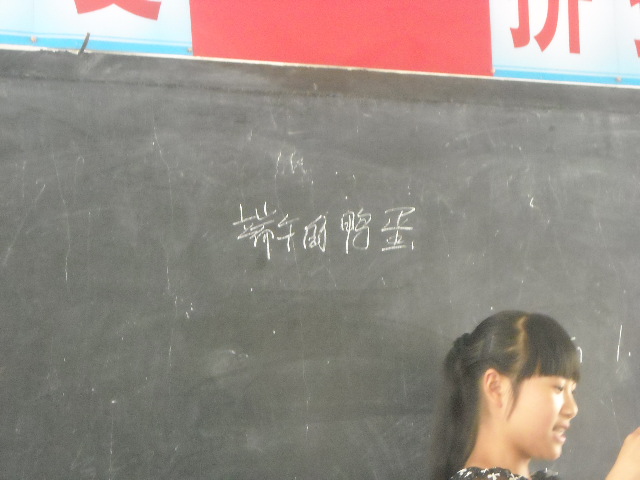 拼
端午的鸭蛋